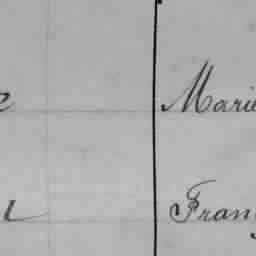 Marie
Franç